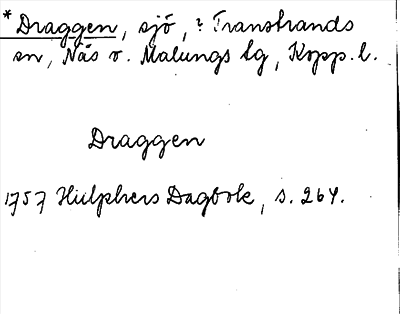 * Draggen, sjö, ? Transtrands
sn, Näs o. Malungs tg, Kopp. l.
Draggen
1757 Hülphers Dagbok, s. 264.